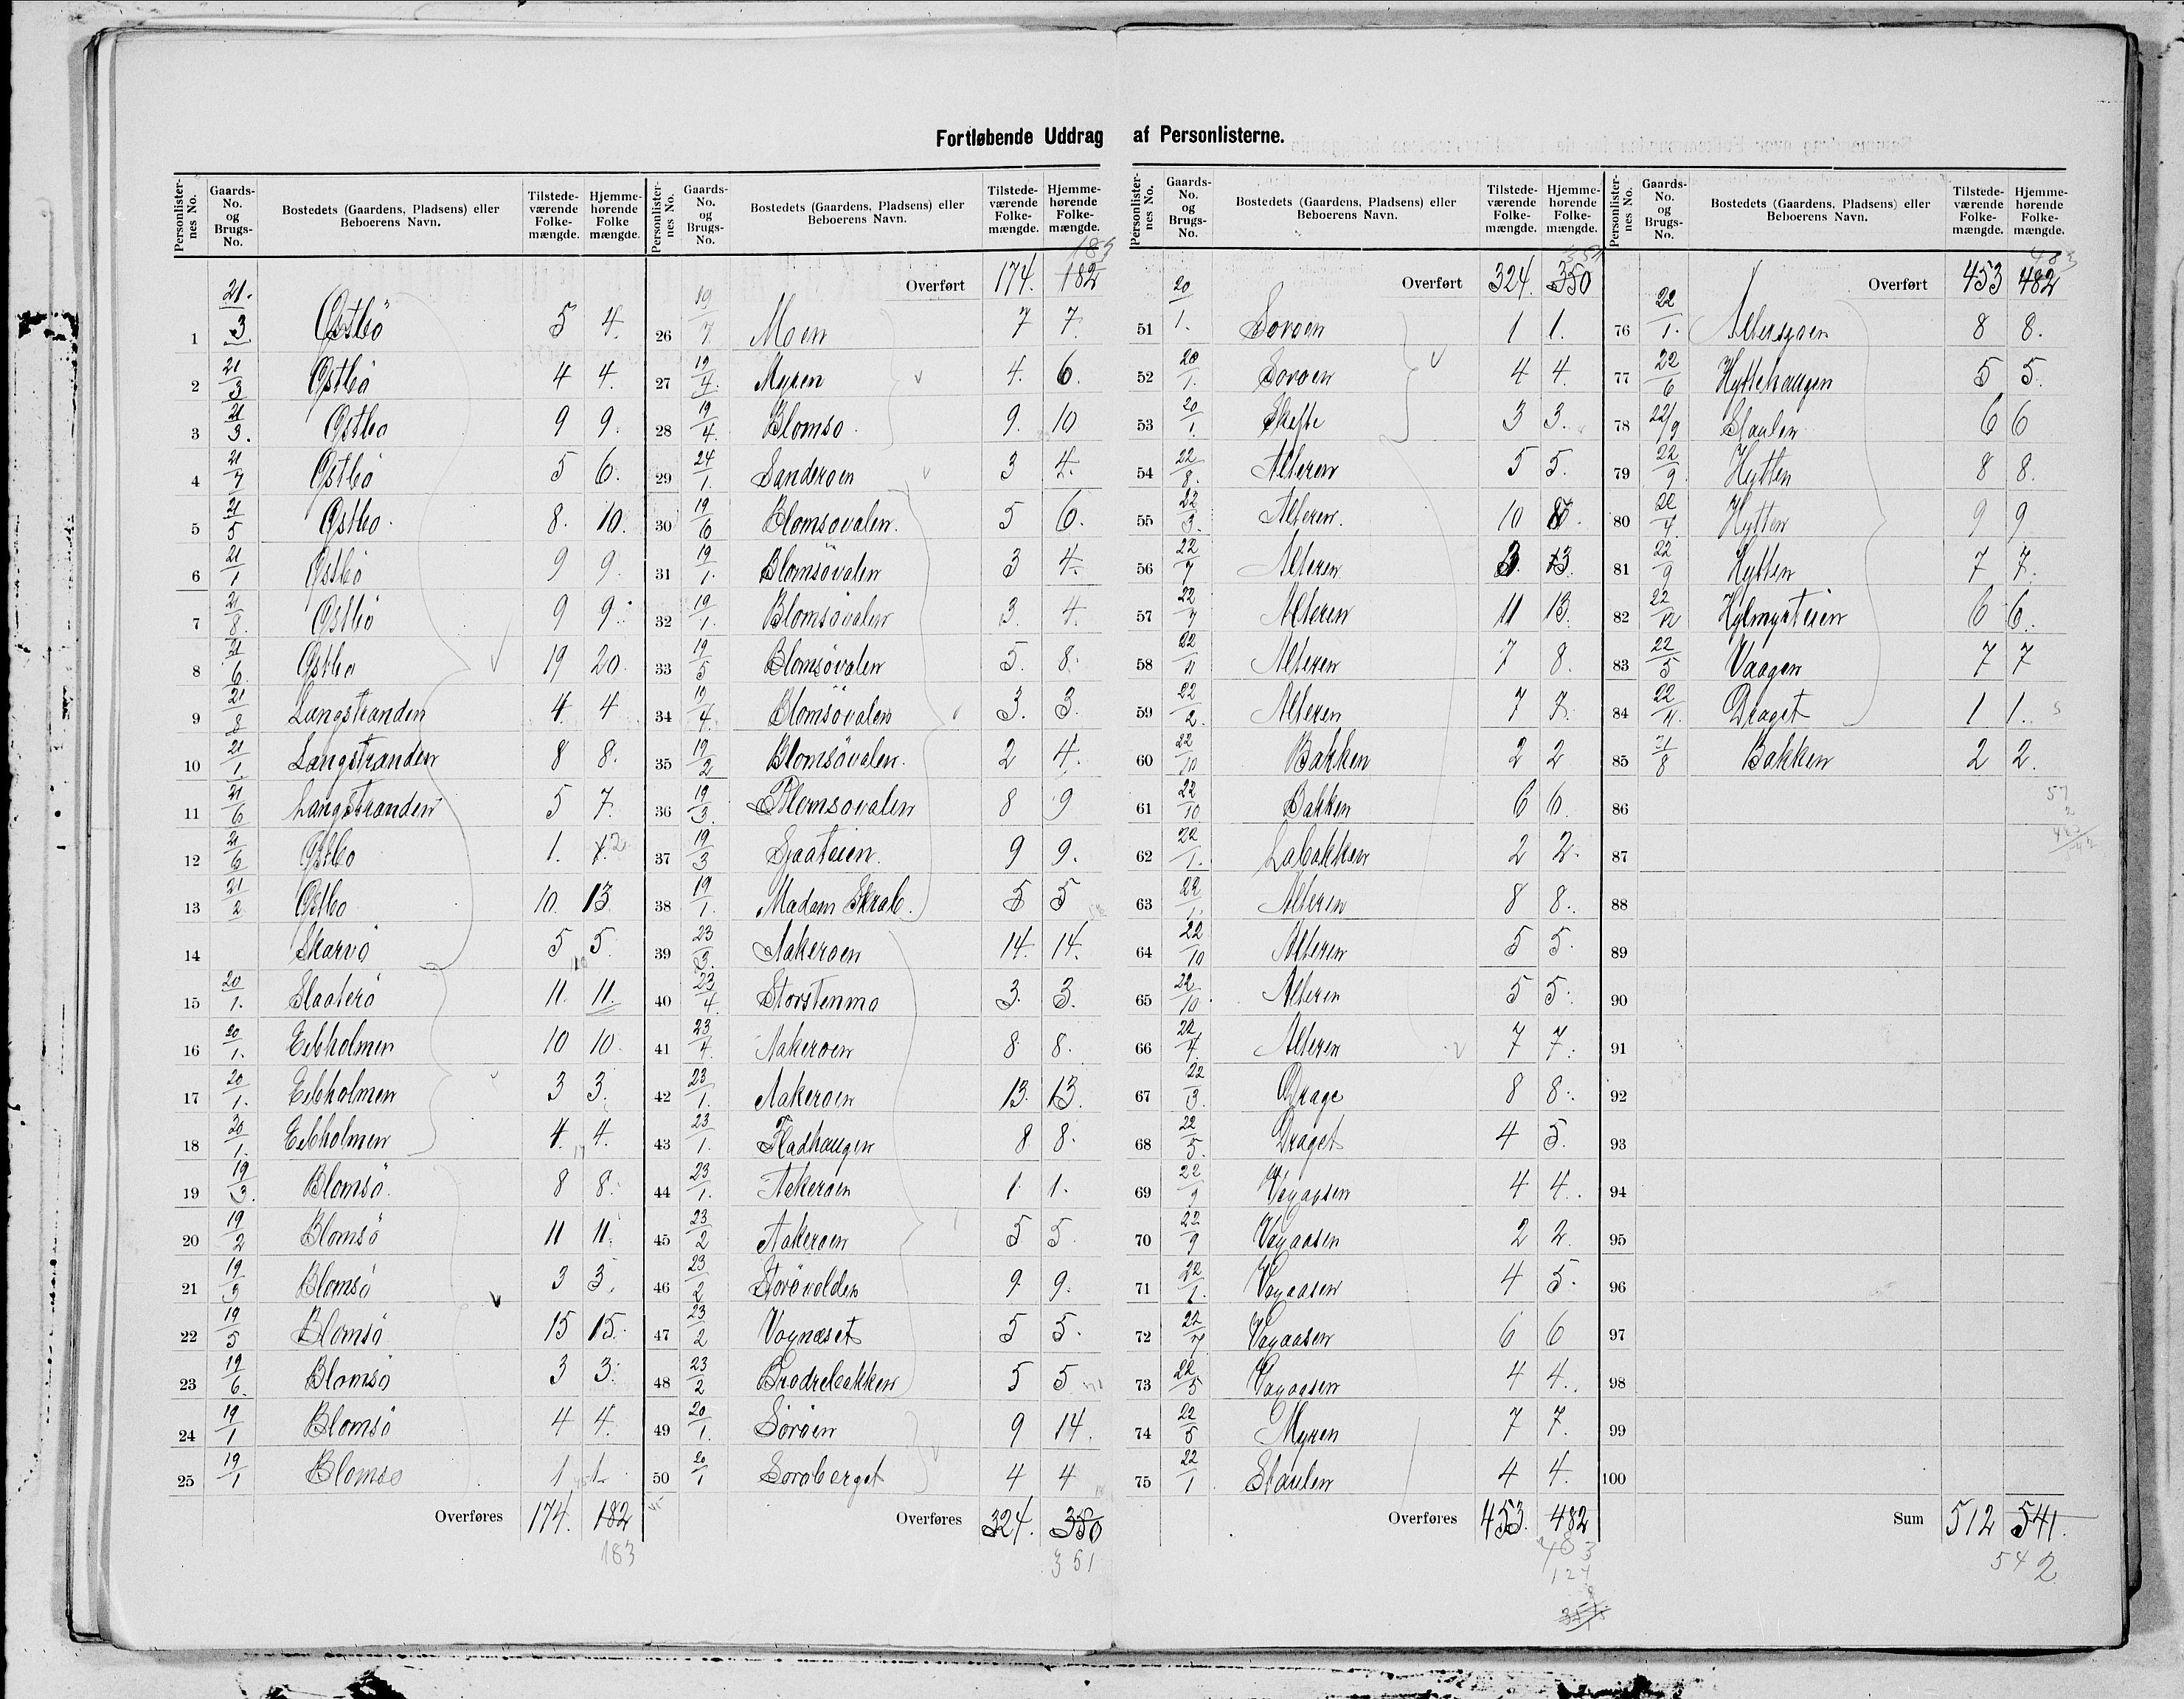 Fortløbende Uddrag af Personlisterne.
Personlisternes No. Gaards-No. og Brugs-No. Bostedets (Gaardens, Pladsens) eller Beboerens Navn. Tilstedeværende Folkemængde. Hjemmehørende Folkemængde.
1 21/3 Østbö 5 4.
2 21/3 Østbö 4 4.
3 21/3. Østbo 9 9.
4 21/7 Østbö 5 6.
5 21/5 Østbo. 8. 10.
6 21/1 Østbö 9 9.
7 21/8. Østbö 9 9.
8 21/6. Østbo 19 20.
9 21/8 Langstranden 4 4
10 21/1. Langstranden 8 8.
11 21/6 Langstranden 5 7.
12 21/6 Østbo 1. 2
13 21/2 Østbo 10. 13.
14 Skarvö 5 5.
15 20/1. Slaaterö 11. 11.
16 20/1. Eebholmen 10 10.
17 20/1. Eebholmen 3 3.
18 20/1. Eebholmen 4. 4.
19 19/3. Blomsö. 8 8.
20 19/2 Blomsö 11 11.
21 19/3 Blomsö 3 3.
22 19/5 Blomsö 15 15.
23 19/6. Blomsö 3 3.
24 19/1 Blomsö 4 4.
25 19/1 Blomso 1 1.
Overføres 174. 182
183
Overført 174. 182
183
26 19/7. Moen 7 7.
27 19/4. Myren 4. 6.
28 19/4. Blomso. 9. 10
29 24/1. Sanderoen 3 4.
30 19/6 Blomsovalen. 5 6.
31 19/1. Blomsövalen 3 4.
32 19/1. Blomsövalen 3. 4.
33 19/5 Blomsövalen 5. 8.
34 19/4. Blomsövalen 3. 3.
35 19/2 Blomsövalen. 2 4.
36 19/3. Blomsovalen 8 9
37 19/3 Sjaateien. 9 9.
38 19/1. Madam Skrab. 5 5
39 23/3. Aakeroen 14. 14.
40 23/4. Storstenmo 3. 3.
41 23/4. Aakeroen 8 8.
42 23/1. Aakeroen 13. 13.
43 23/1. Fladhaugen 8 8.
44 23/1. Aakeroen 1 1.
45 23/2 Aakeroen 5 5.
46 23/2 Storövolden 9 9.
47 23/2 Vognæset 5 5.
48 23/2 Brodrebakken 5 5
49 20/1. Soröen 9 14.
50 20/1 Soroberget 4 4
Overføres 324. 350
351
Overført 324. 350
351
51 20/1. Soroen 1 1.
52 20/1. Soroen 4 4.
53 20/1. Skefte 3 3.
54 22/8. Alteren 5 5.
55 22/3. Alteren. 10
56 22/7 Alteren 3. 3.
57 22/7 Alteren 11 13.
58 22/11 Alteren 7 8.
59 22/2. Alteren 7 7.
60 22/10 Bakken 2 2
61 22/10 Bakken 6 6.
62 22/1. Labakken 2 2.
63 22/1. Alteren 8 8.
64 22/10 Alteren 5 5.
65 22/10. Alteren 5 5.
66 22/4. Alteren 7 7.
67 22/3. Drage 8 8.
68 22/5. Draget 4 5.
69 22/9 Vayaasen 4 4.
70 22/9 Vayaasen 2 2.
71 22/1. Vayaasen 4 5.
72 22/7. Vayaasen 6 6
73 22/5 Vayaasen 4 4.
74 22/5 Myren 7 7.
75 22/1 Staulen 4 4.
Overføres 453. 482
483
124
Overført 453 482
483
76 22/1. 8 8.
77 22/6 Hyttehaugen 5 5.
78 22/9 Staulen 6 6
79 22/9. Hytten 8 8.
80 22/4. Hytten 9 9.
81 22/9 Hytten 7 7.
82 22/12 Hylmyrteien 6 6.
83 22/5 Vaagen 7 7
84 22/11. Draget 1 1.
85 21/8 Bakken 2 2.
86
87
88
89
90
91
92
93
94
95
96
97
98
99
100
Sum 512 541.
542